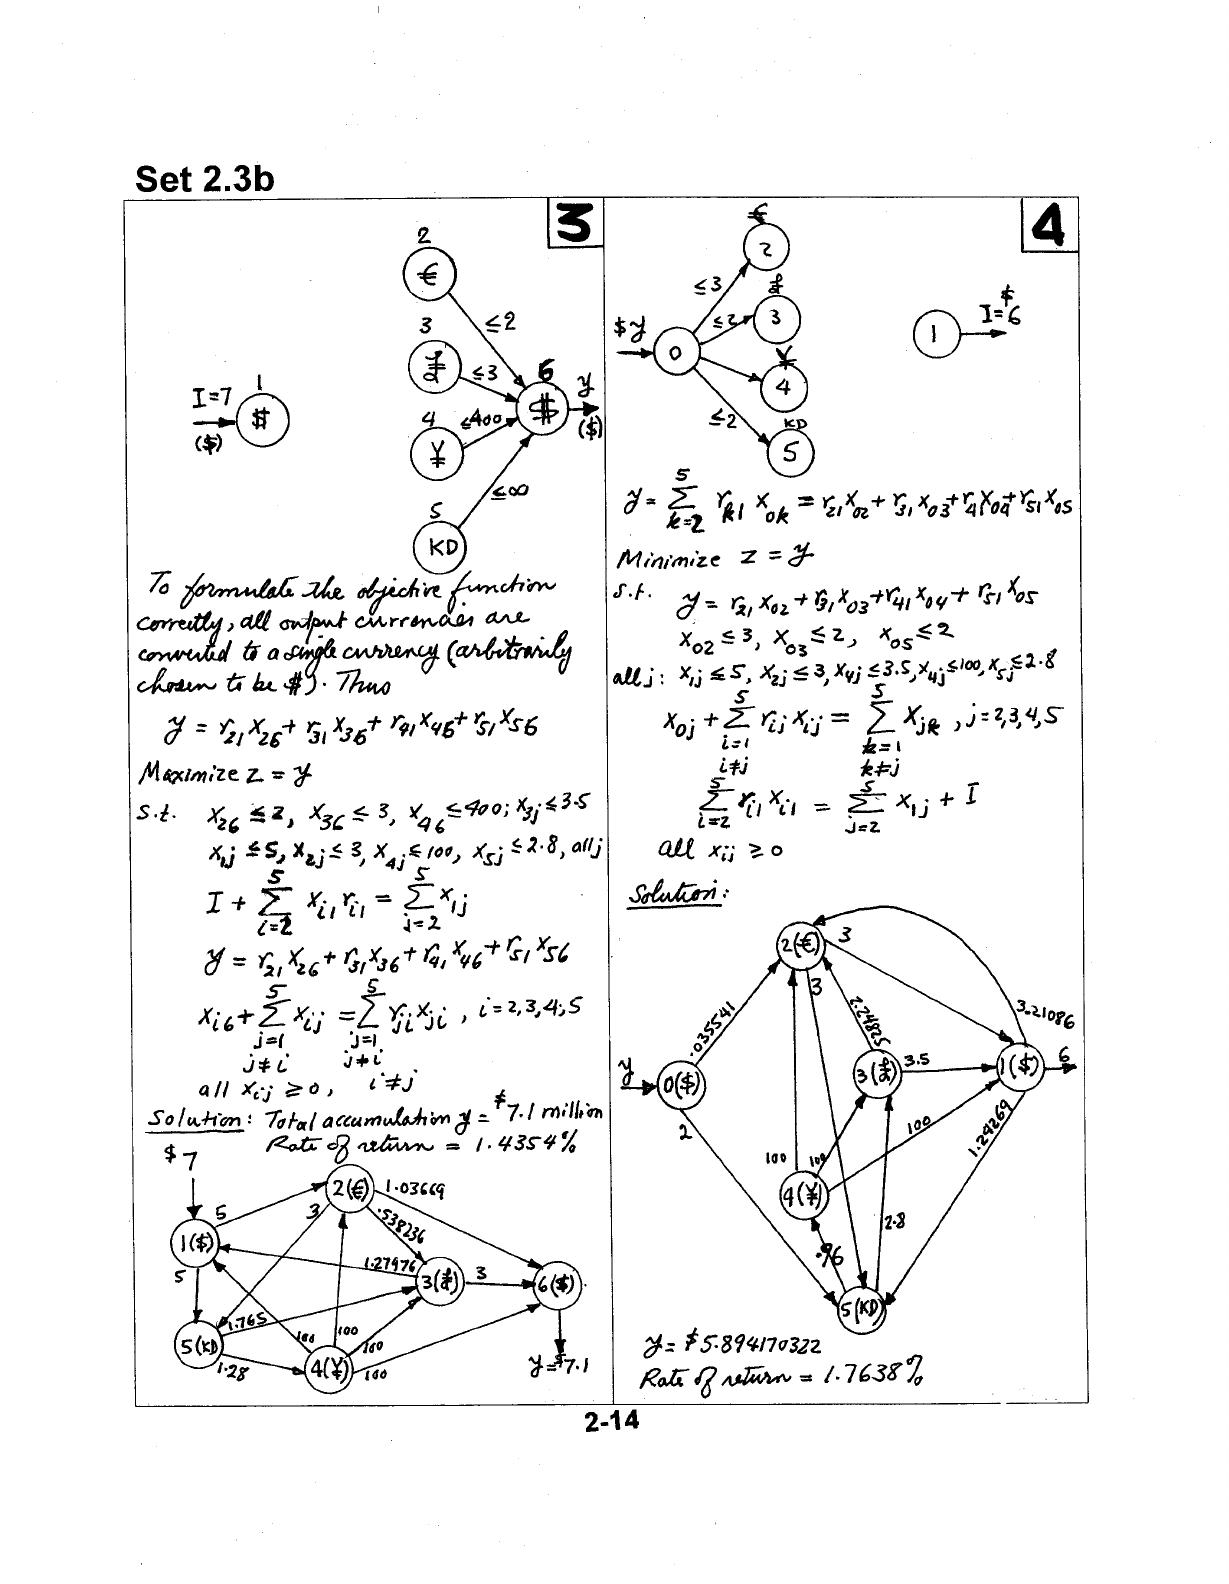 Set 2.3b
3
2
€
≤2
3
£
≤3
6
$
y
($)
I=7
($)
1
$
4
¥
≤400
≤∞
5
KD
To formulate the objective function
correctly, all output currencies are
converted to a single currency (arbitrarily
chosen to be $). Thus
y = r21 x26 + r31 x36 + r41 x46 + r51 x56
Maximize z = y
s.t. x26 ≤ 2, x36 ≤ 3, x46 ≤ 400; x3j ≤ 3.5
x1j ≤ 5, x2j ≤ 3, x4j ≤ 100, x5j ≤ 2.8, all j
I + Σ(i=2 to 5) xi1 ri1 = Σ(j=2 to 5) x1j
y = r21 x26 + r31 x36 + r41 x46 + r51 x56
xi6 + Σ(j=1 to 5, j≠i) xij = Σ(j=1 to 5, j≠i) rji xji , i = 2,3,4,5
all xij ≥ 0, i≠j
Solution: Total accumulation y = $7.1 million
Rate of return = 1.4354%
$7
2(€)
1.03669
5
3
.538236
1($)
1.27976
3(£)
3
6($)
5
1.765
5(KD)
1.28
100
100
100
4(¥)
100
y=$7.1
4
€
2
≤3
£
$y
≤2
3
0
¥
4
≤2
KD
5
$
I=6
1
y = Σ(k=2 to 5) rk1 x0k = r21 x02 + r31 x03 + r41 x04 + r51 x05
Minimize z = y
s.t. y = r21 x02 + r31 x03 + r41 x04 + r51 x05
x02 ≤ 3, x03 ≤ 2, x05 ≤ 2
all j: x1j ≤ 5, x2j ≤ 3, x4j ≤ 3.5, x4j ≤ 100, x5j ≤ 2.8
x0j + Σ(i=1 to 5, i≠j) rij xij = Σ(k=1 to 5, k≠j) xjk , j = 2,3,4,5
Σ(i=2 to 5) ri1 xi1 = Σ(j=2 to 5) x1j + I
all xij ≥ 0
Solution:
2(€)
3
3
.035541
2.24825
3.21086
y
0($)
3(£)
3.5
1($)
6
2
100
100
100
1.24269
4(¥)
2.8
.96
5(KD)
y = $5.894170322
Rate of return = 1.7638%
2-14